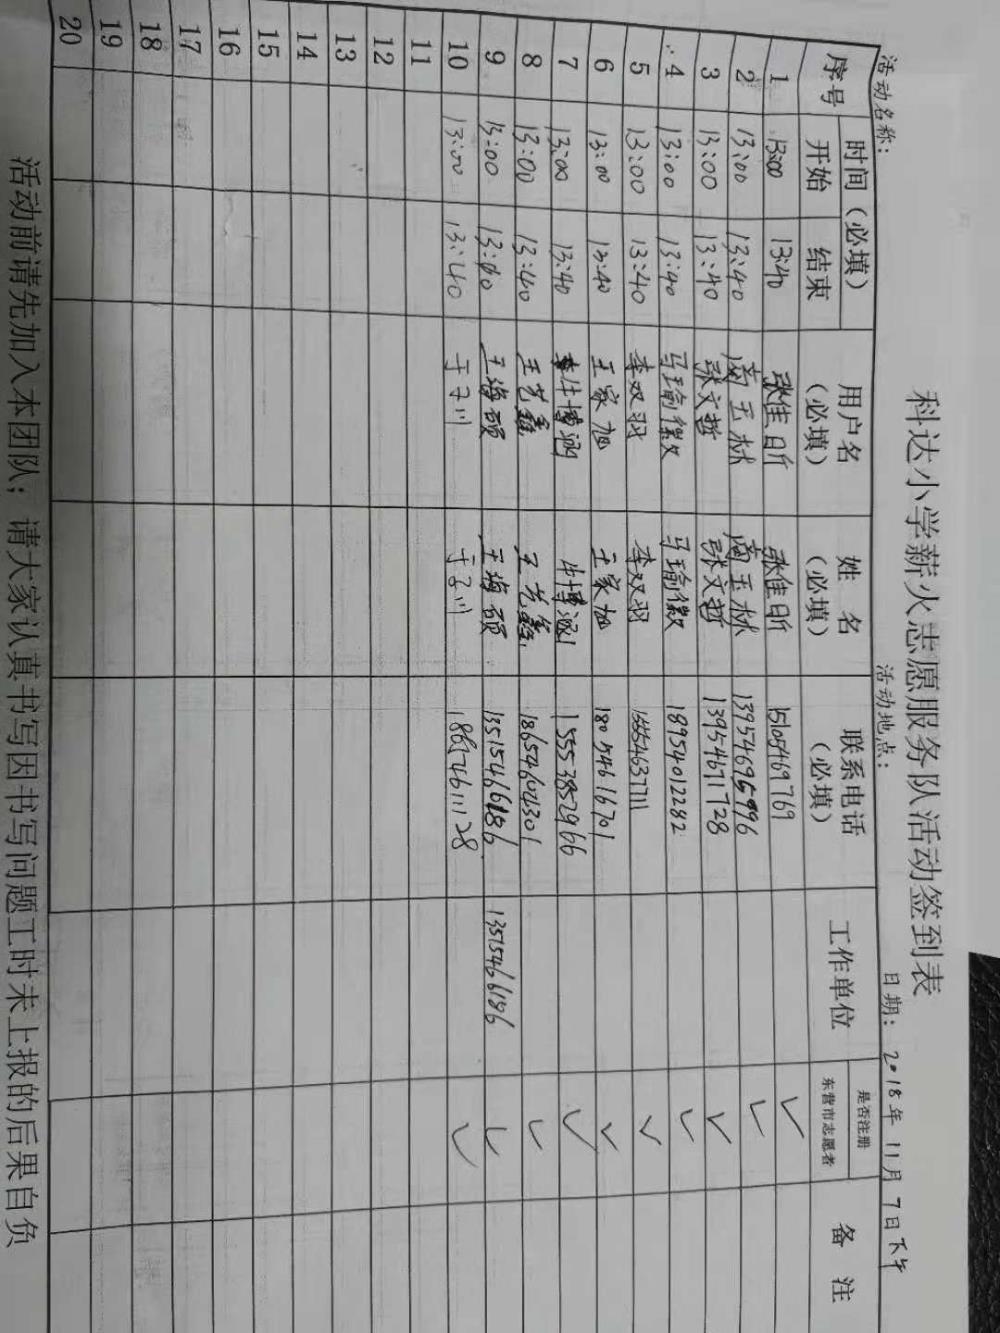 科达小学薪火志愿服务队活动签到表
活动名称： 活动地点： 日期：2018年11月7日下午
序号 时间（必填） 用户名（必填） 姓名（必填） 联系电话（必填） 工作单位 是否注册东营市志愿者 备注
开始 结束
1 13:00 13:40 张佳昕 张佳昕 15105469769 ✓
2 13:00 13:40 商玉林 商玉林 13954695996 ✓
3 13:00 13:40 张文哲 张文哲 13954671728 ✓
4 13:00 13:40 马瑜徽 马瑜徽 18954012282 ✓
5 13:00 13:40 李双羽 李双羽 15554637711 ✓
6 13:00 13:40 王家旭 王家旭 18054616701 ✓
7 13:00 13:40 牛博涵 牛博涵 15553852966 ✓
8 13:00 13:40 王艺鑫 王艺鑫 18654606301 ✓
9 13:00 13:40 王海硕 王海硕 13515466186 13515466186 ✓
10 13:00 13:40 于子川 于子川 18674611128 ✓
11
12
13
14
15
16
17
18
19
20
活动前请先加入本团队；请大家认真书写因书写问题工时未上报的后果自负